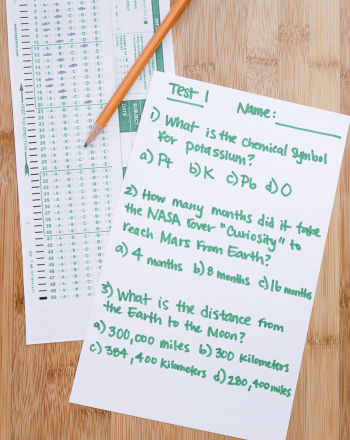 Test 1
Name:
1) What is the chemical symbol
for potassium?
a) Pt b) K c) Pb d) O
2) How many months did it take
the NASA rover "Curiosity" to
reach Mars from Earth?
a) 4 months b) 8 months c) 16 months
3) What is the distance from
the Earth to the Moon?
a) 300,000 miles b) 300 kilometers
c) 384,400 kilometers d) 280,400 miles